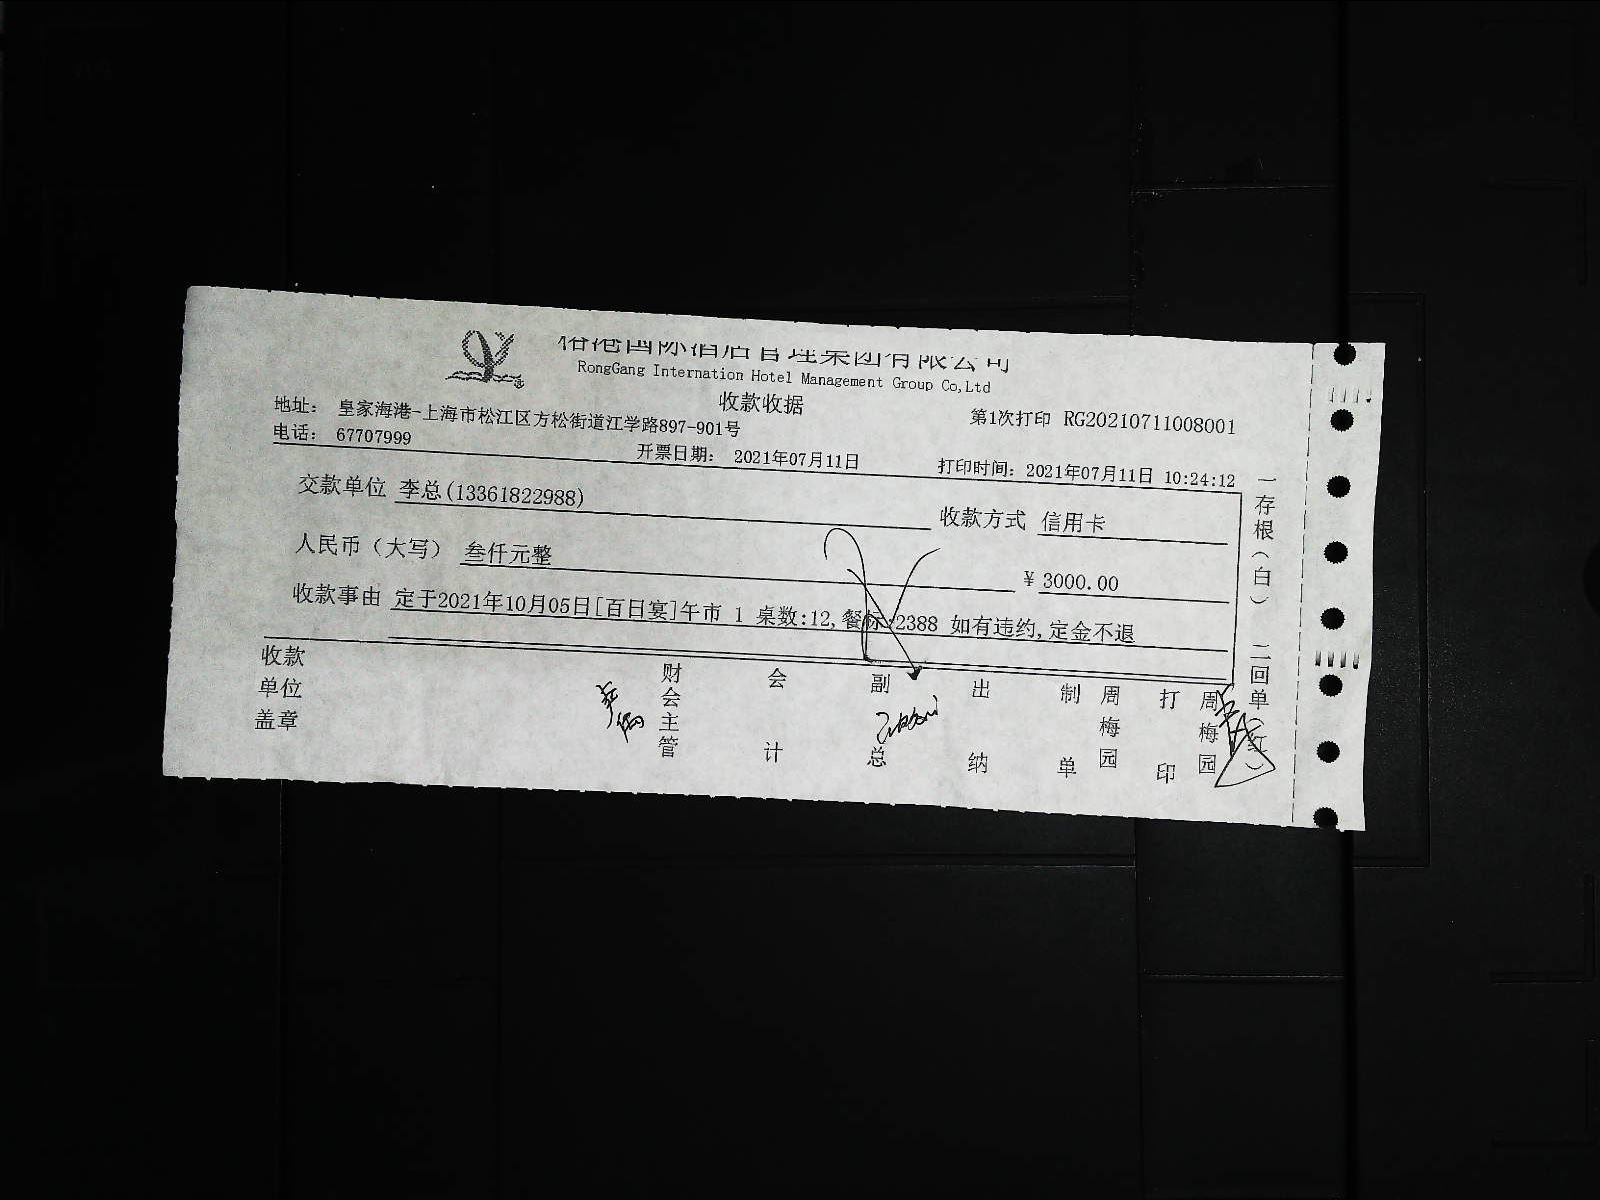 港国际酒店管理集团有限公司
RongGang Internation Hotel Management Group Co,Ltd
收款收据
地址: 皇家海港-上海市松江区方松街道江学路897-901号
第1次打印 RG20210711008001
电话: 67707999
开票日期: 2021年07月11日
打印时间: 2021年07月11日 10:24:12
交款单位 李总(13361822988)
收款方式 信用卡
人民币(大写) 叁仟元整
¥ 3000.00
收款事由 定于2021年10月05日[百日宴]午市 1 桌数:12,餐标:2388 如有违约,定金不退
收款单位盖章
财会主管
会计
副总
出纳
制单
周梅园
打印
周梅园
一存根(白) 二回单(红)